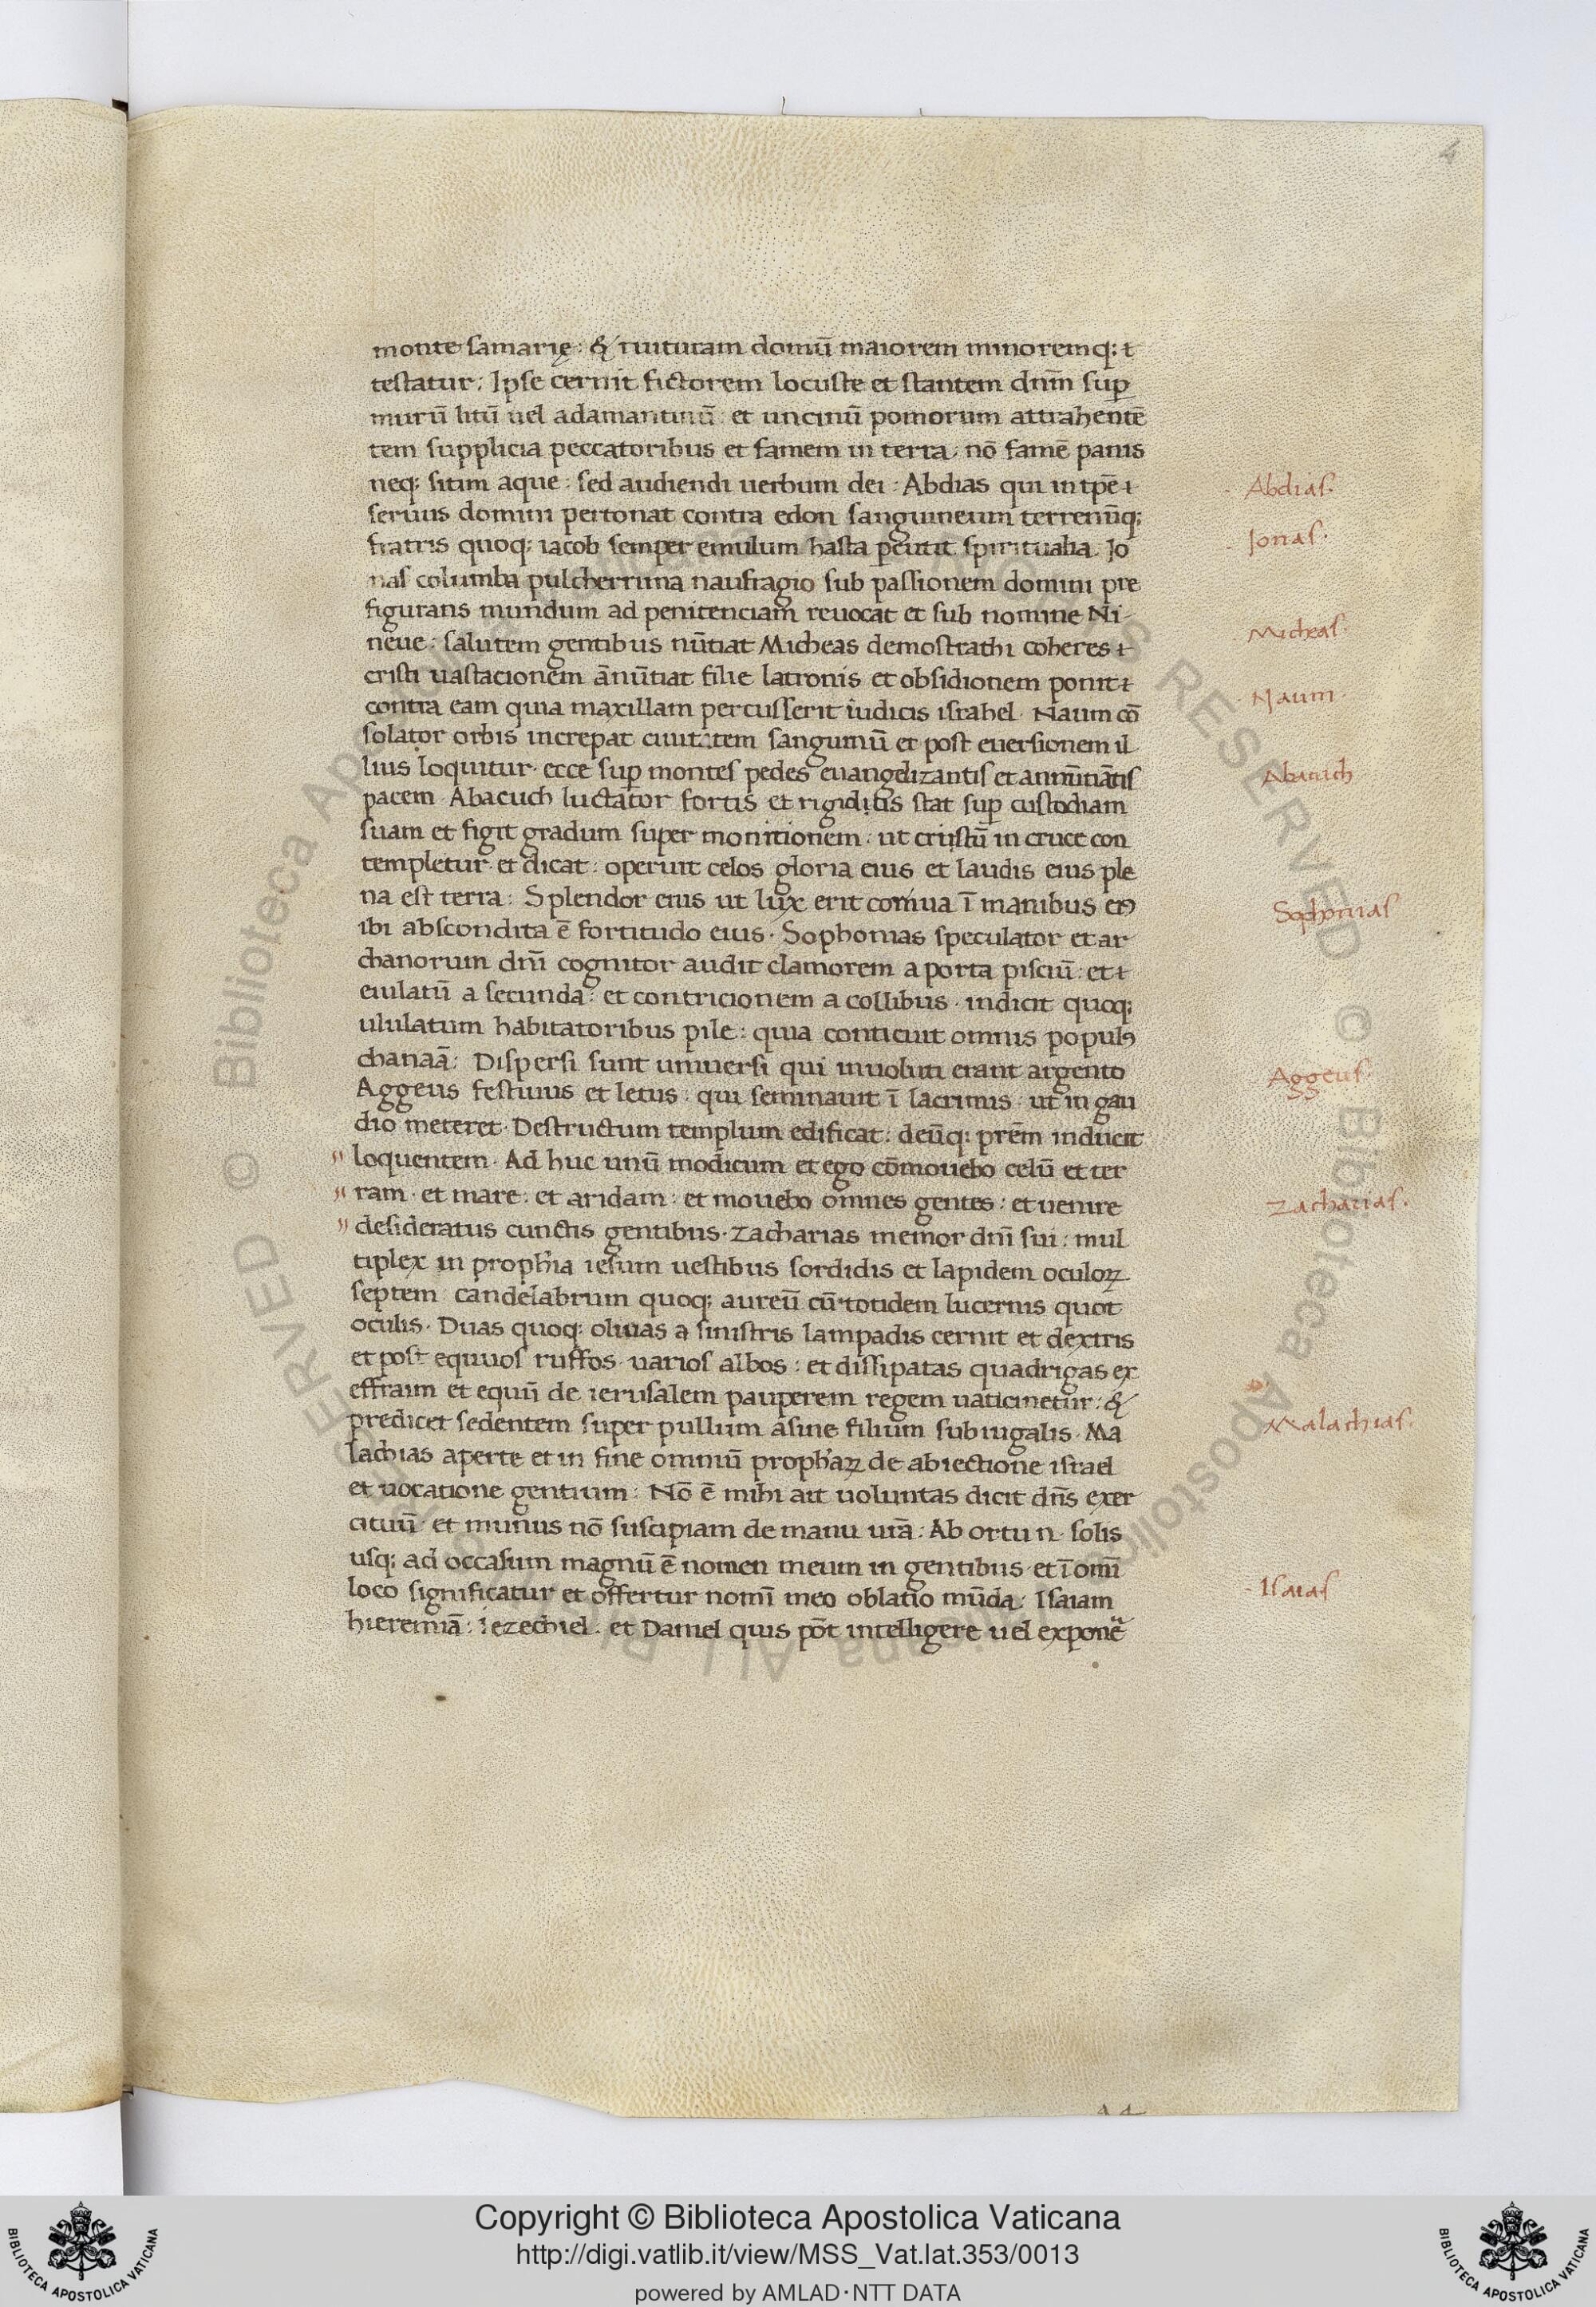 4
monte samarię: & ruituram domū maiorem minoremq;
testatur: Ipse cernit fictorem locuste et stantem dnm̄ sup̱
murū litū uel adamantinū: et uncinū pomorum attrahentē
tem supplicia peccatoribus et famem in terra, nō famē panis
neq; sitim aque: sed audiendi uerbum dei: Abdias qui intp̄e
Abdias.
seruus domini pertonat contra edon sanguineum terrenūq;
fratris quoq; iacob semper emulum hasta pcutit spiritualia. Io
Jonas.
nas columba pulcherrima naufragio sub passionem domini pre
figurans mundum ad penitenciam reuocat et sub nomine Ni-
neue: salutem gentibus nūtiat Micheas demostrathi coheres
Micheas.
cristi uastacionem ānūtiat filie latronis et obsidionem ponit
contra eam quia maxillam percusserit iudicis israhel. Naum cō
Naum
solator orbis increpat ciuitatem sanguinū et post euersionem il
lius loquitur. ecce sup̱ montes pedes euangelizantis et annūtiātis
Abacuch
pacem. Abacuch luctator fortis et rigidus stat sup̱ custodiam
suam et figit gradum super monitionem: ut cristū in cruce con
templetur. et dicat: operuit celos gloria eius et laudis eius ple
na est terra: Splendor eius ut lux erit cornua ī manibus eiꝰ
Sophonias
ibi abscondita ē fortitudo eius. Sophonias speculator et ar
chanorum dnī cognitor audit clamorem a porta pisciū: et
eiulatū a secunda: et contricionem a collibus. indicit quoq;
ululatum habitatoribus pile: quia conticuit omnis populꝰ
chanaā: Dispersi sunt uniuersi qui inuoluti erant argento
Aggeus.
Aggeus festiuus et letus: qui seminauit ī lacrimis. ut in gau
dio meteret. Destructum templum edificat: deūq; prēm inducit
" loquentem. Ad huc unū modicum et ego cōmouebo celū et ter
" ram. et mare: et aridam: et mouebo omnes gentes: et uenire
Zacharias.
" desideratus cunctis gentibus. Zacharias memor dnī sui: mul
tiplex in proph̄ia iesum uestibus sordidis et lapidem oculoꝝ
septem candelabrum quoq; aureū cū totidem lucernis quot
oculis. Duas quoq; oliuas a sinistris lampadis cernit et dextris
et post equuos ruffos uarios albos: et dissipatas quadrigas ex
effraim et equū de ierusalem pauperem regem uaticinetur: &
predicet sedentem super pullum asine filium subiugalis. Ma
Malachias.
lachias aperte et in fine omniū proph̄aꝝ de abiectione israel
et uocatione gentium: Nō ē mihi ait uoluntas dicit dn̄s exer
cituū. et munus nō suscipiam de manu urā: Ab ortu n. solis
usq; ad occasum magnū ē nomen meum in gentibus et ī omī
loco significatur et offertur nomī meo oblatio mūda: Isaiam
Isaias
hieremiā: iezechiel. et Daniel quis pōt intelligere uel exponē
© Biblioteca Apostolica Vaticana ALL RIGHTS RESERVED
Copyright © Biblioteca Apostolica Vaticana
http://digi.vatlib.it/view/MSS_Vat.lat.353/0013
powered by AMLAD·NTT DATA
BIBLIOTECA APOSTOLICA VATICANA
BIBLIOTECA APOSTOLICA VATICANA